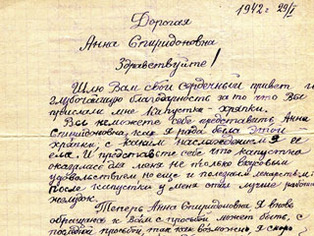 1942 г 29/I
Дорогая
Анна Спиридоновна
Здравствуйте!
Шлю Вам свой сердечный привет и
глубочайшую благодарность за то что Вы
прислали мне капусты хряпки.
Вы не можете себе представить, Анна
Спиридоновна, как я рада была этой
хряпки, с каким наслаждением я ее
ела. И представьте себе что капустка
оказалась для меня не только вкусовым
удовольствием но еще и полезным лекарством:
После капустки у меня стал лучше работать
желудок.
Теперь Анна Спиридоновна Я вновь
обращаюсь к Вам с просьбой может быть, с
последней просьбой так как возможно, я скоро